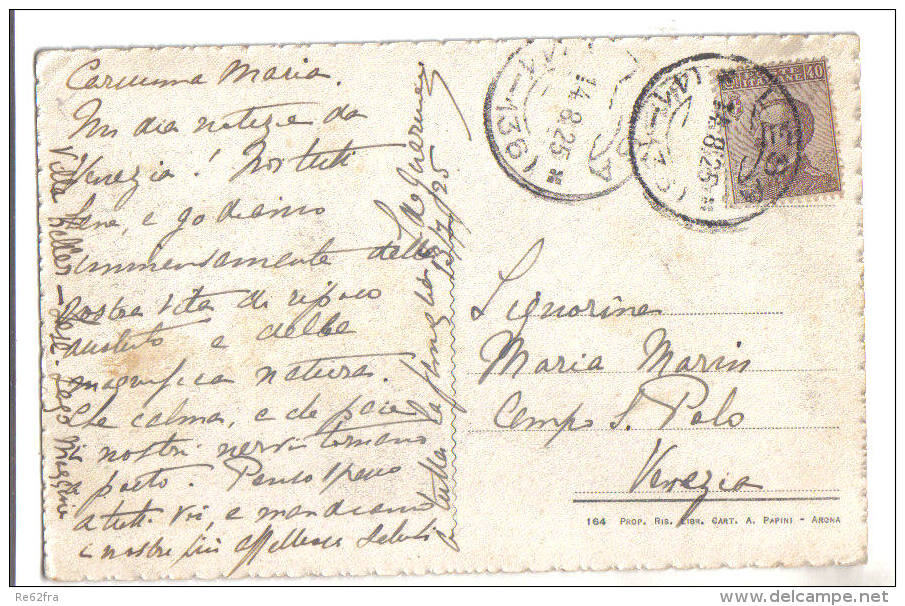 Carissima Maria.
Mi dia notizie da
Venezia! Noi tutti
bene, e godiamo
immensamente della
nostra vita di riposo
assoluto e della
magnifica natura.
Che calma, e che pace
i nostri nervi tornano
a posto. Penso spesso
a tutti voi, e mandiamo
i nostri più affettuosi saluti
a tutta la famiglia
13/8/25
Villa - Lesa - Lago Maggiore
14.8.25
14.8.25
40
Signorina
Maria Marin
Campo S. Polo
Venezia
164 PROP. RIS. LIBR. CART. A. PAPINI - ARONA
Re62fra
www.delcampe.net